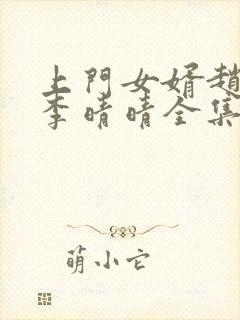 上門女婿趙
李晴晴全集
萌小它